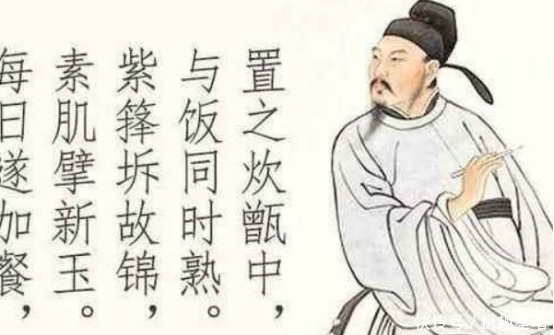 置之炊甑中，
与饭同时熟。
紫箨坼故锦，
素肌擘新玉。
每日遂加餐，
快传号